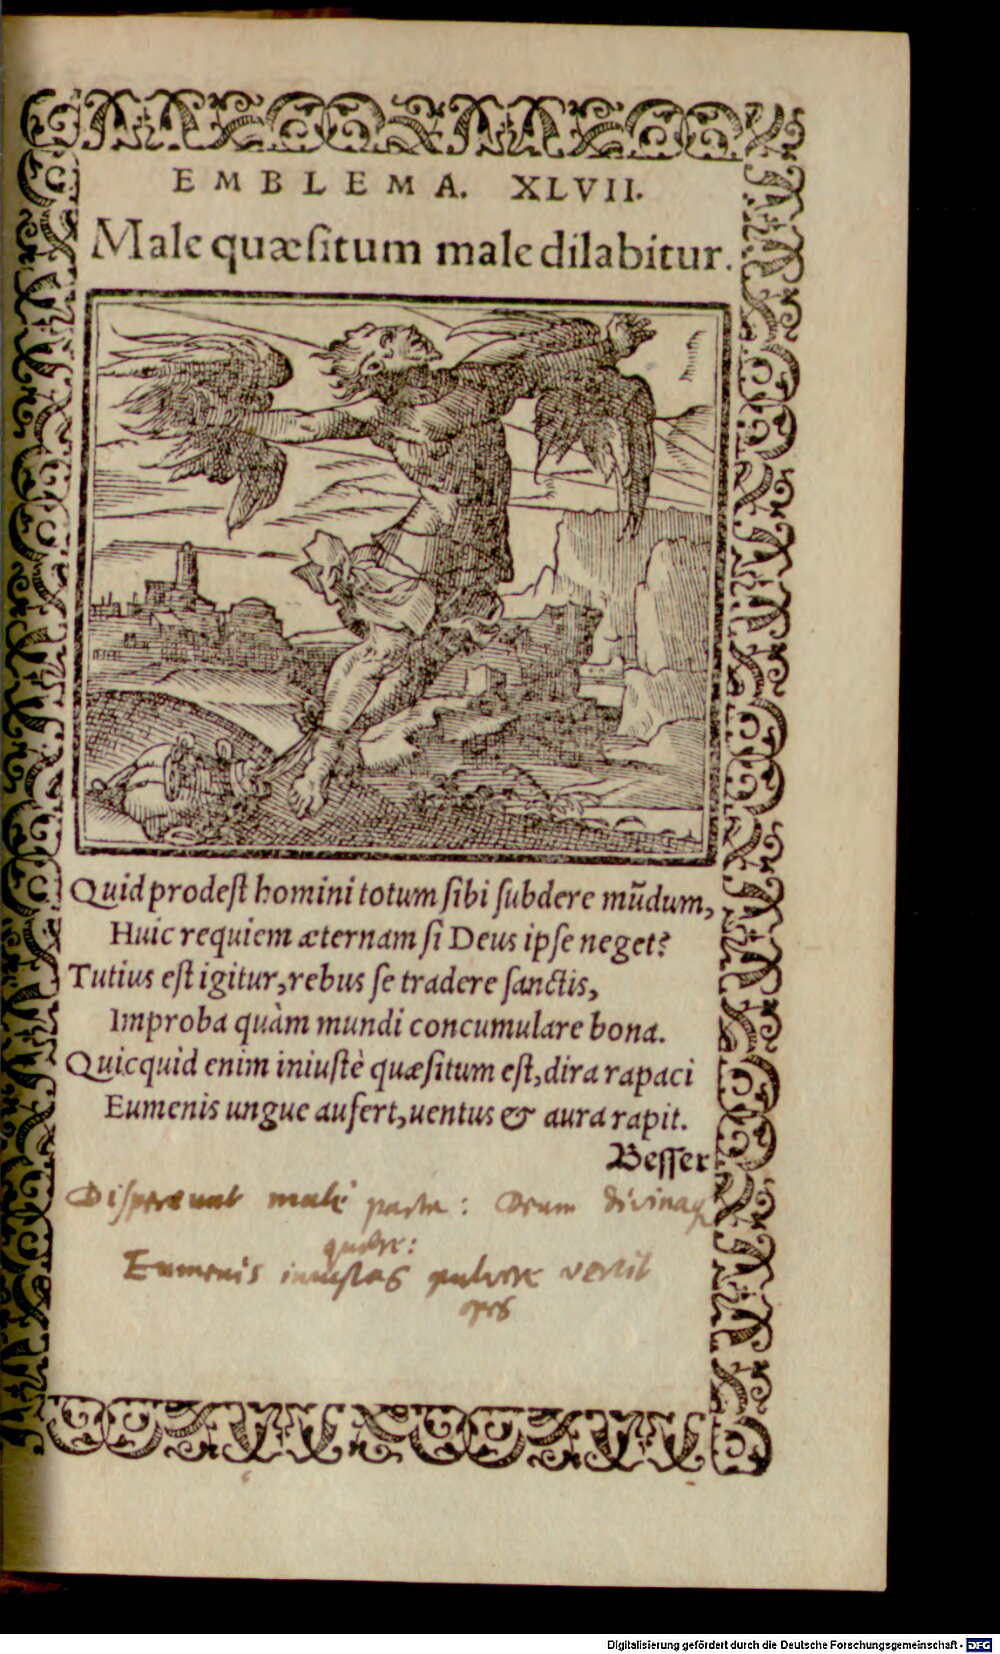 EMBLEMA. XLVII.
Male quæsitum male dilabitur.
Quid prodest homini totum sibi subdere mũdum,
Huic requiem æternam si Deus ipse neget?
Tutius est igitur, rebus se tradere sanctis,
Improba quàm mundi concumulare bona.
Quicquid enim iniustè quæsitum est, dira rapaci
Eumenis ungue aufert, uentus & aura rapit.
Besser
Dispereunt male parta: Deum divinaq
quære:
Eumenis iniustas pulvere vertit
opes
Digitalisierung gefördert durch die Deutsche Forschungsgemeinschaft - DFG